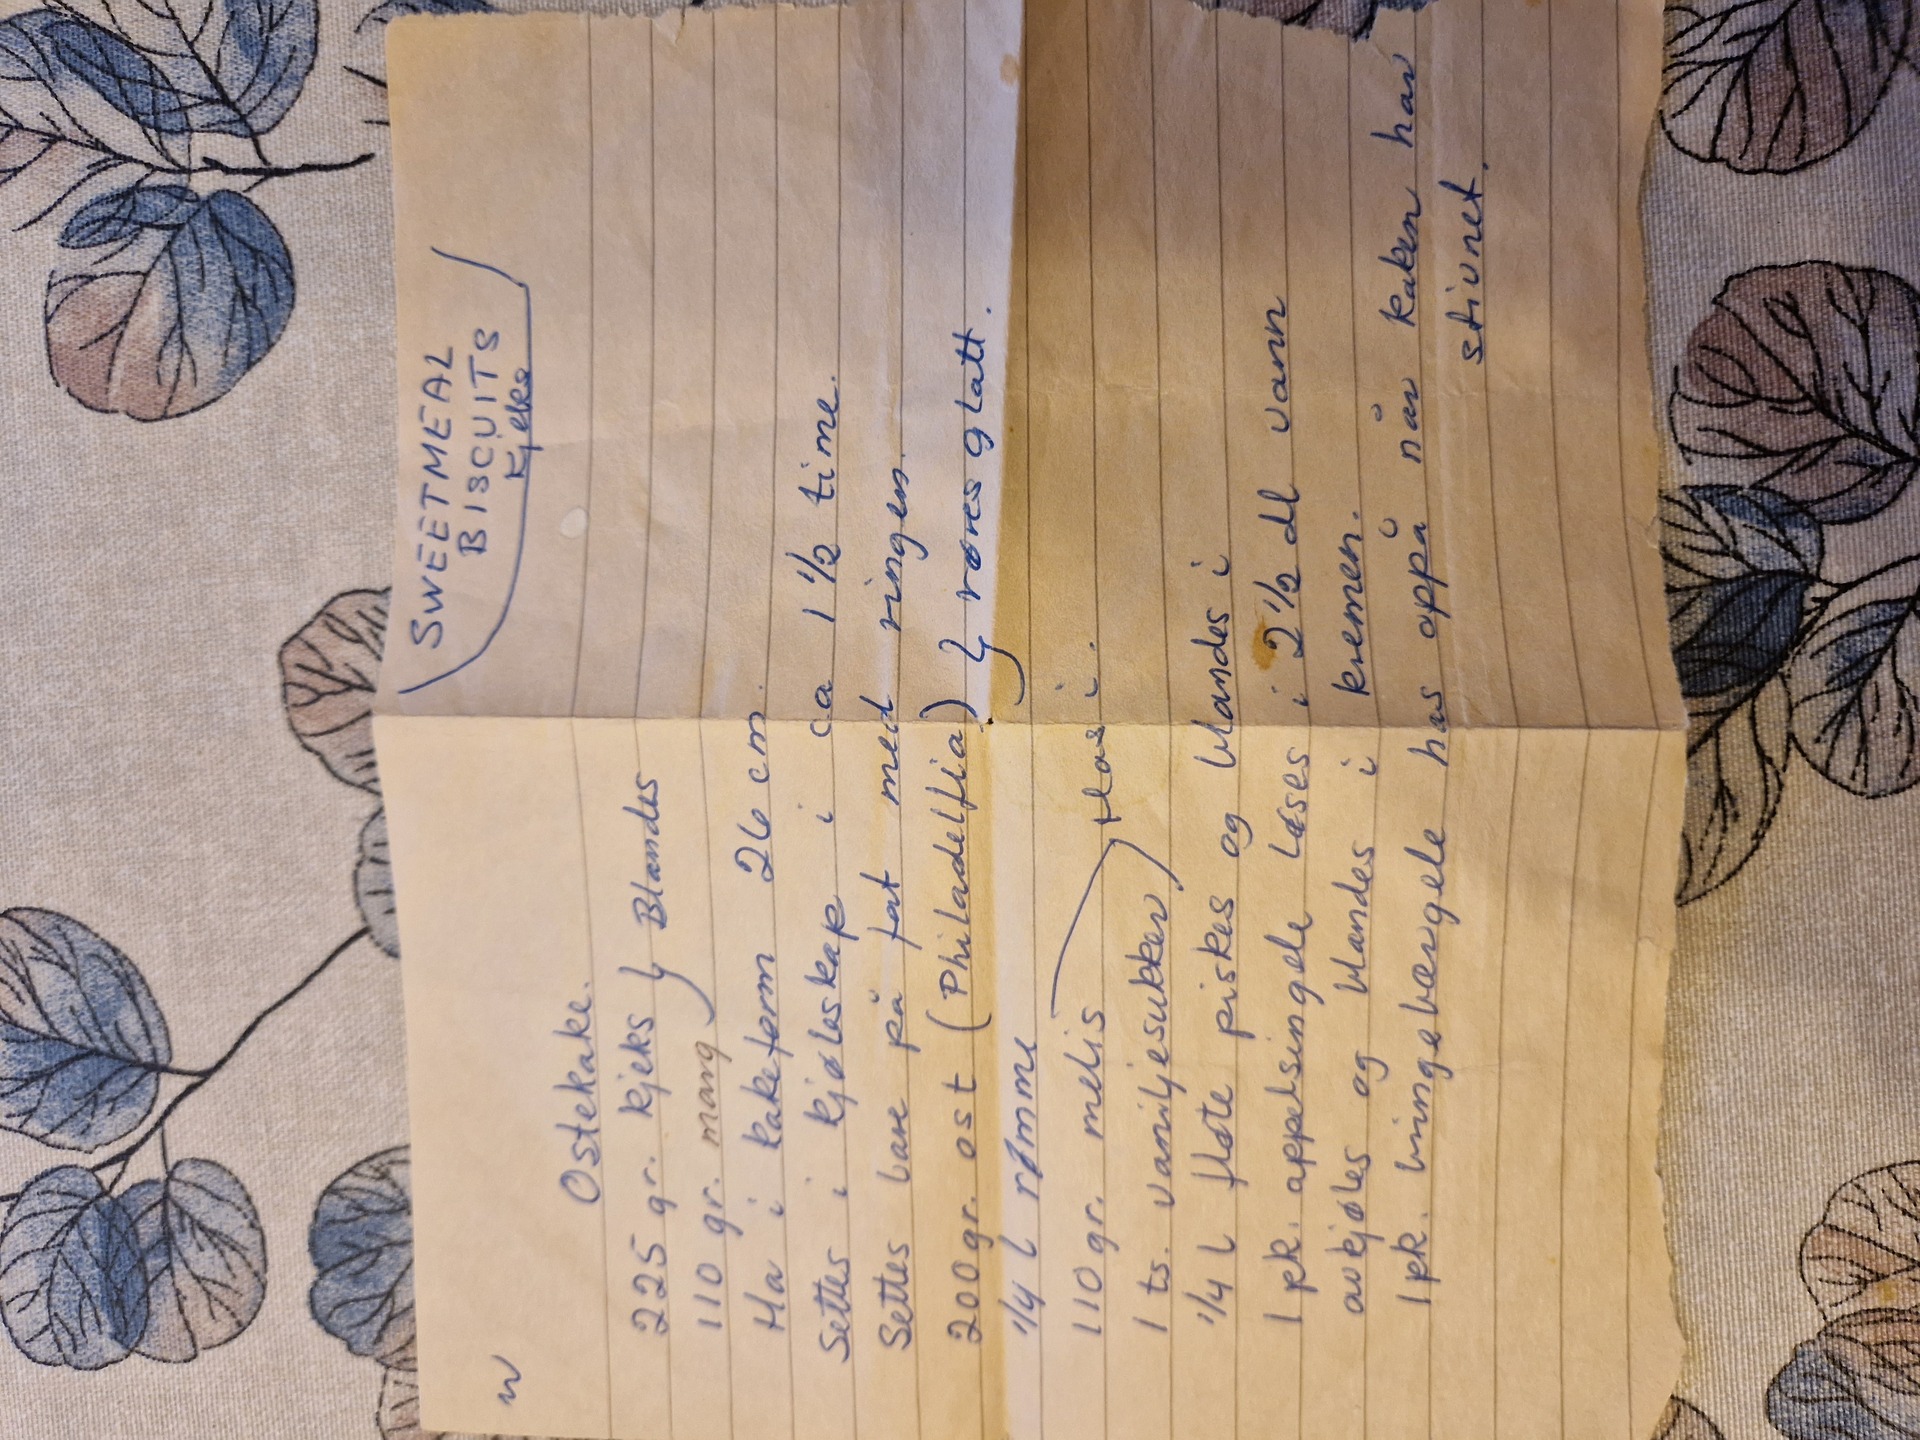 SWEETMEAL
BISCUITS
kjeks
Ostekake.
225 gr. kjeks } Blandes
110 gr. marg
Ha i kakeform 26 cm.
Settes i kjøleskap i ca 1 1/2 time.
Settes bare på fat med ringen.
200 gr. ost (Philadelfia) } røres glatt.
1/4 l rømme
110 gr. melis
Has i.
1 ts. vaniljesukker
1/4 l fløte piskes og blandes i
1 pk. appelsingele løses i 2 1/2 dl vann
avkjøles og blandes i kremen.
1 pk. bringebærgele has oppå når kaken har
stivnet.